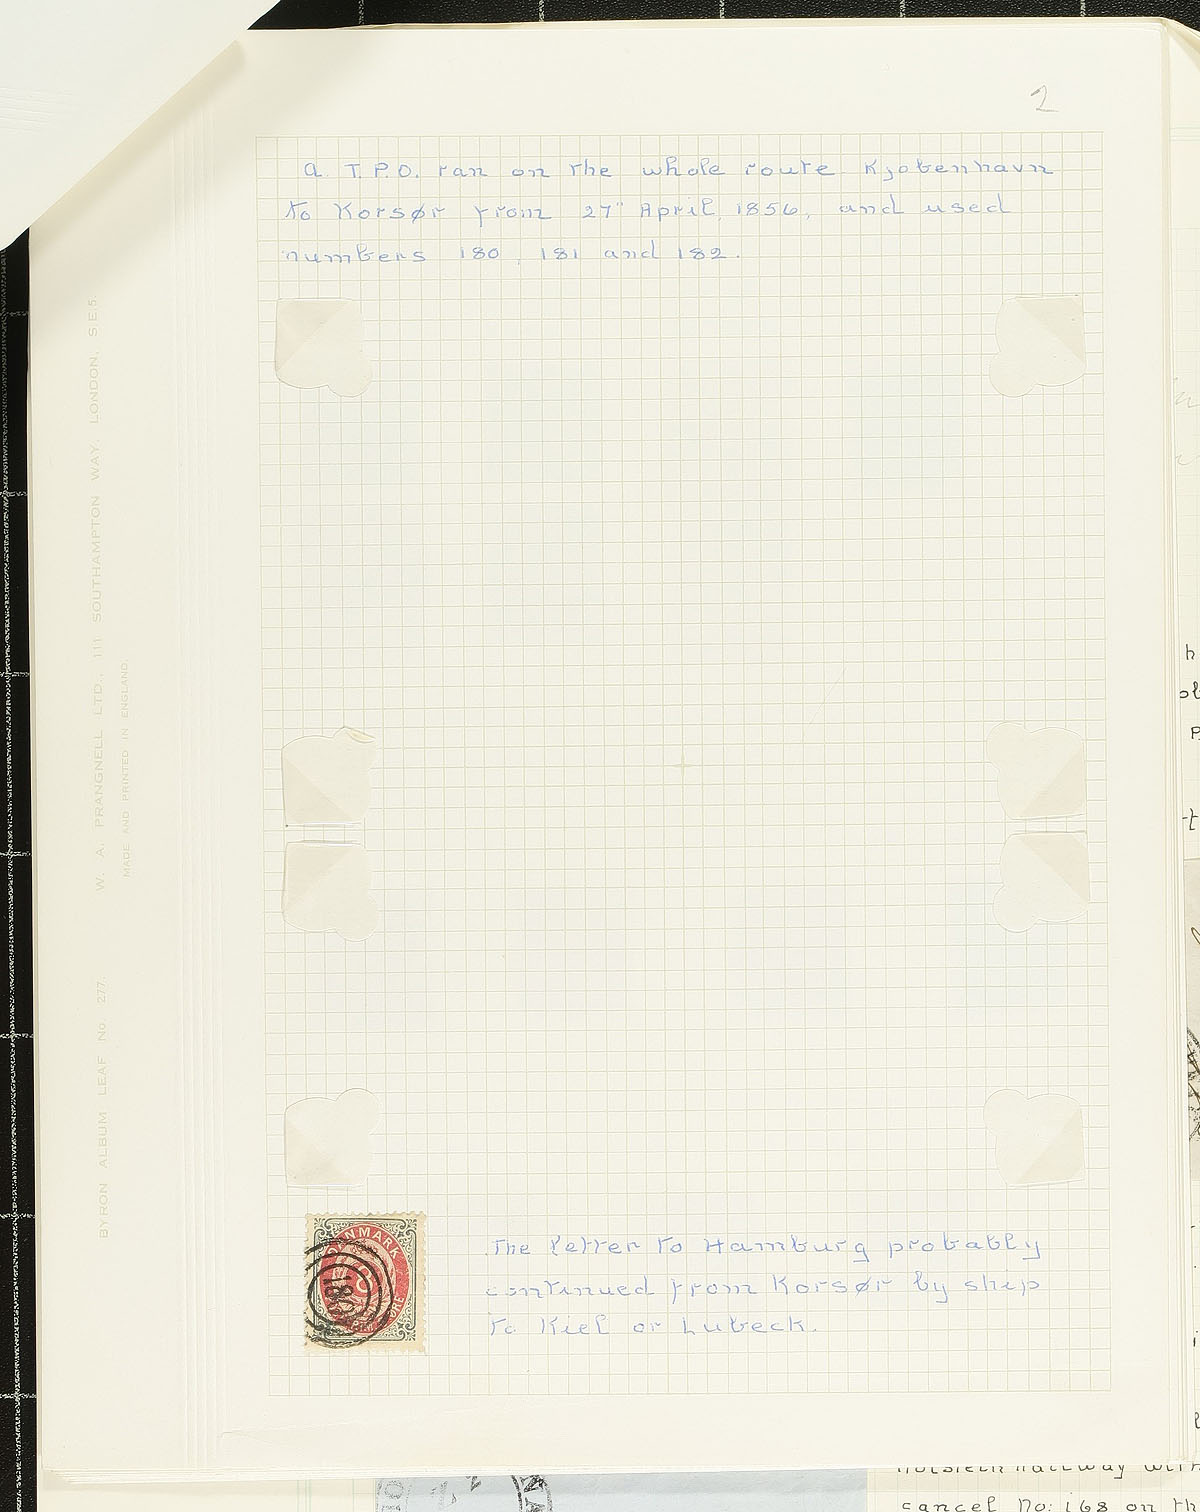 2
A T.P.O. ran on the whole route Kjobenhavn
to Korsør from 27" April, 1856, and used
numbers 180, 181 and 182.
W. A. PRANGNELL LTD., 111 SOUTHAMPTON WAY, LONDON, S.E.5
MADE AND PRINTED IN ENGLAND.
BYRON ALBUM LEAF No. 277.
DANMARK
8
ØRE
The letter to Hamburg probably
continued from Korsør by ship
to Kiel or Lubeck.
cancel No: 168 on th